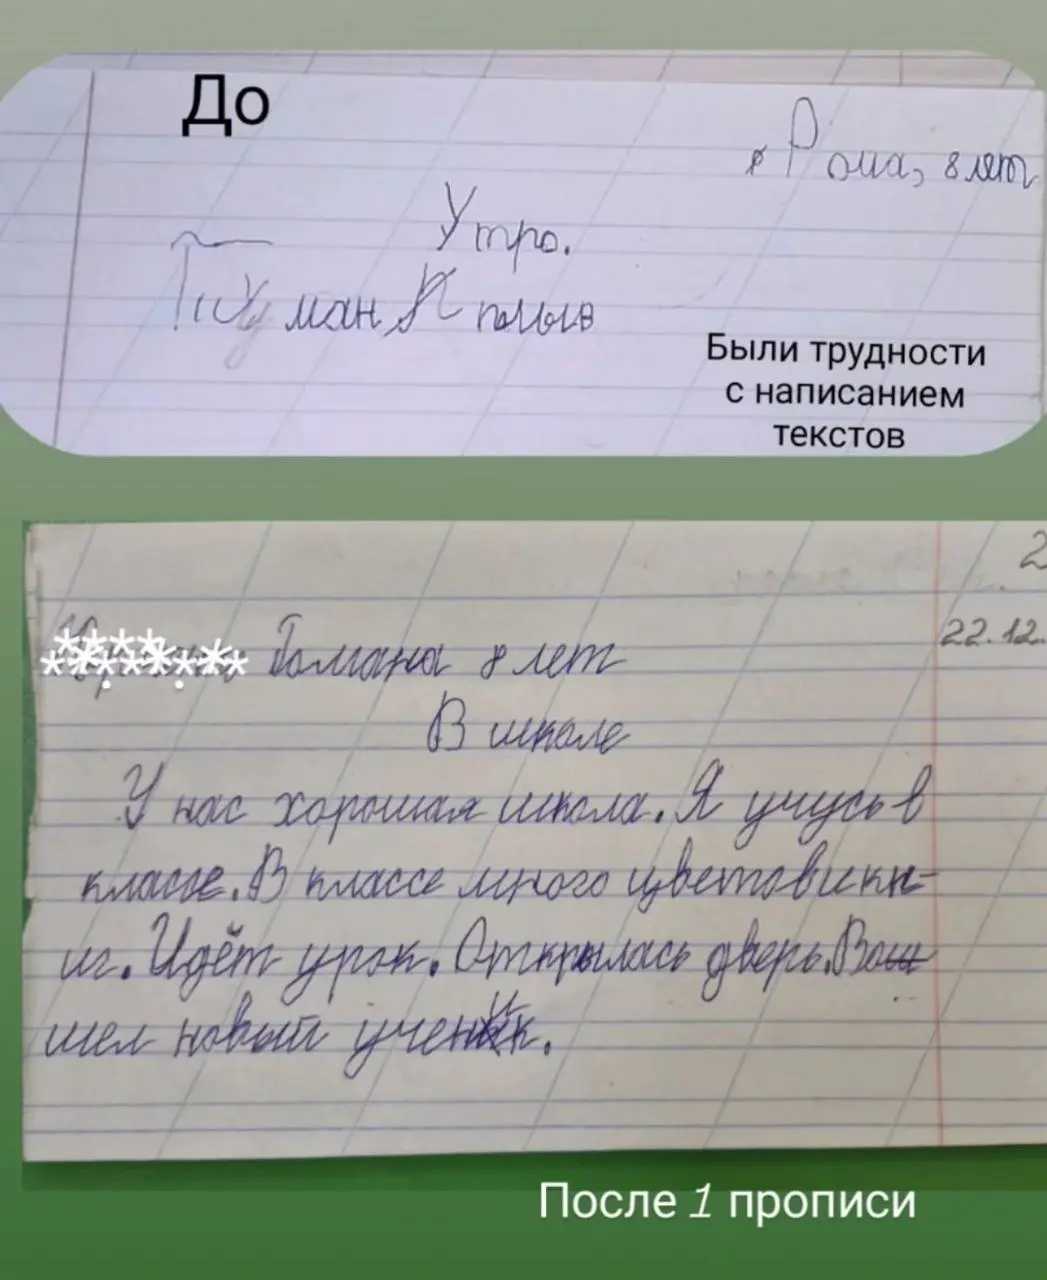 До
Рома, 8 лет
Утро.
Туман
Были трудности
с написанием
текстов
2
22.12.
Гомана 8 лет
В школе
У нас хорошая школа. Я учусь в
классе. В классе много цветов и кн-
иг. Идёт урок. Открылась дверь. Вош
шел новый ученик.
После 1 прописи